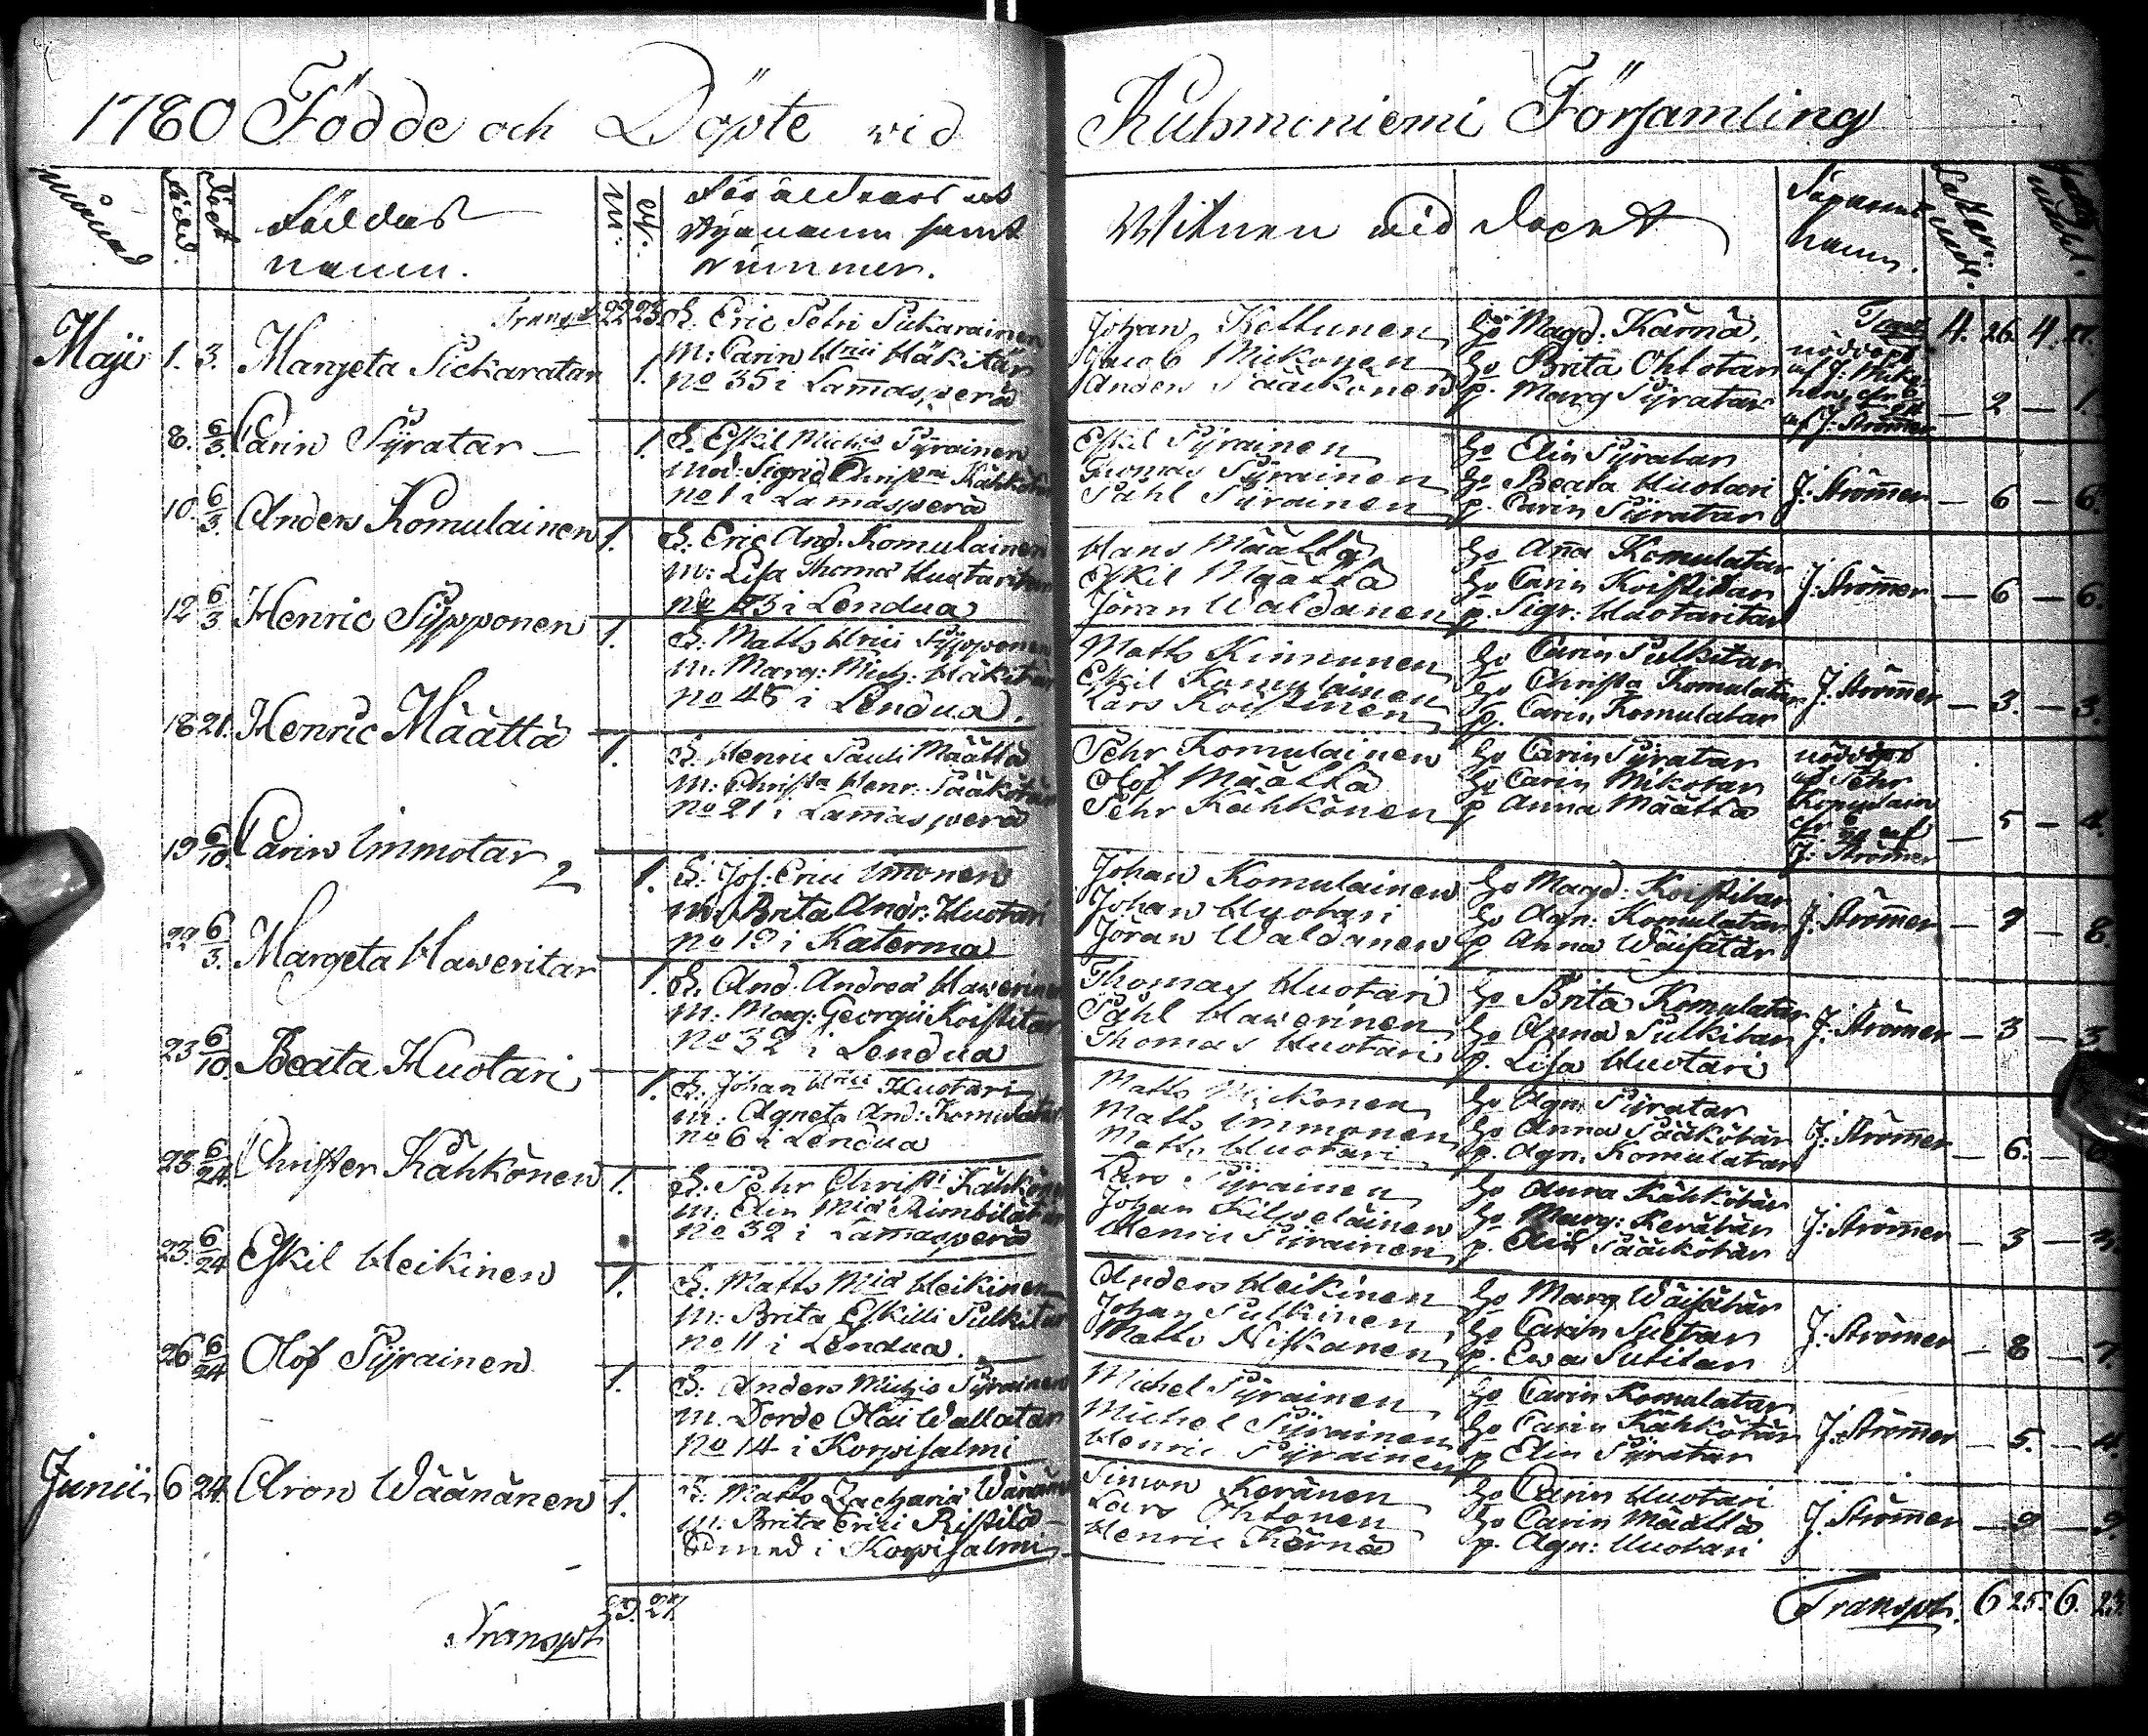 1780 Födde och Döpte vid Kuhmoniemi Församling
Månad
född.
döpt
Föddas
namn.
m.
q.
Föräldrars
namn samt
Nummer.
Witnen vid dopet
namn.
Transpt 22 23
Maji 1. 3. Margeta Sickaratar 1.
F. Eric Petri Sickarainen
M: Carin Hrici Häkitär
No 35 i Lam̄asperä
Johan Kettunen
Jacob Mikonen
Anders Pääkönen
Ho Magd: Kärnä,
Ho Brita Ohtotar
p. Marg Pyratar
Transp 4. 26 4.
nöddöpt
af J: Miko-
nen
af J: Strömer
— 2 — 1.
8. 6/3 Carin Pyratar — 1.
F. Eskil Michs Pyrainen
Mod: Sigrid Christni
No 1 i Lamasperä
Eskil Pyrainen
Thomas Pyrainen
Påhl Pyrainen
Ho Elin Pyratar
Ho Beata Huotari
p. Carin Pyratar
J. Strömer — 6 — 6.
10. 6/3 Anders Komulainen 1.
F. Eric And: Komulainen
M: Lisa Thomæ Huotaritar
No 23 i Lendua
Hans Määttä
Eskil Määttä
Jöran Waldanen
Ho Anna Komulatar
Ho Carin Koistitar
p. Sigr: Huotaritar
J. Strömer — 6 — 6.
12 6/3 Henric Sypponen 1.
F. Matts Hrici Sypponen
M. Marg: Mich: Häkitär
No 48 i Lendua.
Matts Kinnunen
Eskil Komulainen
Lars Koistinen
Ho Carin Pulkitar
Ho Christa Komulatar
p. Carin Komulatar
J. Strömer — 3. — 3.
18 21. Henric Määttä 1.
F. Henric Pauli Määttä
M: Christa Henr: Pääkötär
No 21 i Lam̄asperä
Pehr Komulainen
Olof Määttä
Pehr Kähkönen
Ho Carin Pyratar
Ho Carin Mikotar
p Anna Määttä
nöddöpt
af Pehr
Komulain
J: Strömer
— 5 — 4.
19 6/10. Carin Immotar 2 1.
F. Jos: Erici Imonen
M: Brita Andr: Huotari
No 19 i Katerma
Johan Komulainen
Johan Huotari
Jöran Waldanen
Ho Magd: Koistitar
Ho Agn: Komulatar
p Anna Wäisätär
J. Strömer — 9 — 8.
22 6/3. Margeta Haweritar 1.
F. And. Andreæ Hawerinen
M: Marg: Georgii Koistitar
No 32 i Lendua
Thomas Huotari
Påhl Hawerinen
Thomas Huotari
Ho Brita Komulatar
Ho Anna Pulkitar
p. Lisa Huotari
J. Strömer — 3 — 3
23 6/10. Beata Huotari 1.
F. Johan Hrici Huotari
M: Agneta And: Komulatar
No 6 i Lendua
Matts Mickonen
Matts Immonen
Matts Huotari
Ho Agn: Pyratar
Ho Anna Pääkötär
p. Agn: Komulatar
J: Strömer — 6. —
23. 6/24. Christer Kähkönen 1.
F: Pehr Christi Kähkönen
M: Elin
No 32 i Lamasperä
Lars Pyrainen
Johan Kilpeläinen
Henric Pyrainen
Ho Anna Kähkötär
Ho Marg: Kerätär
p. Elin Pääkötär
J: Strömer — 3 — 3.
23. 6/24 Eskil Heikinen 1.
F: Matts Heikinen
M: Brita Eskilli Pulkitar
No 11 i Lendua.
Anders Heikinen
Johan Pulkinen
Matts Niskanen
Ho Marg Wäisätär
Ho Carin Suetar
p. Ewa Sutitar
J. Strömer — 8 — 7.
26 6/24 Olof Pyrainen 1.
F: Anders Michs Pyrainen
M. Dorde Olai Wallatar
No 14 i Korpisalmi
Michel Pyrainen
Michel Pyrainen
Henric Pyrainen
Ho Carin Komulatar
Ho Carin Kähkötär
p Elin Pyratar
J. Strömer — 5. — 4.
Junii 6 24. Aron Wäänänen 1.
F: Matts Zachariæ Wänänen
M. Brita Erici Ristila
Smed i Korpisalmi
Simon Keränen
Lars Ohtonen
Henric Kärnä
Ho Carin Huotari
Ho Carin Määttä
p. Agn: Huotari
J. Strömer — 9 — 9.
Transpt 29. 27.
Transpt. 6 25. 6. 23.